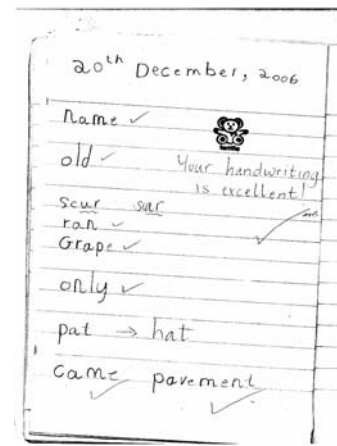 20th December, 2006
name
old
Your handwriting
is excellent!
scur
ran
Grape
only
pat → hat
came pavement